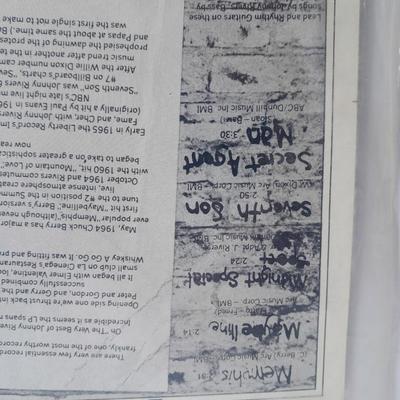 There are very few essential record
frankly, one of the most worthy record
On "The Very Best of Johnny River
incredible as it seems the LP spans
Opening side one we're thrust back in
Peter and Gordon, and Gerry and the
successfully combined
It all began with Elmer Valentine, lo
small club on La Cienega Restaura
Whiskey A Go Go. It was rapidly and pr
May, 1964 Chuck Berry has a major
ever popular "Memphis", (although
first hit "Maybelline," Berry's version
tune to the #2 position in the Summe
live,' intense atmosphere creat
October 1964 and Rivers commute
with the 1966 hit, "Mountain of Love,"
began to take on a greater sophisticat
now rea
Early in 1965 The Liberty Record's Im
Fame, and Cher, with Johnny River
(originally a hit by Paul Evans in 19
NBC's late night live m
"Seventh Son" was Johnny Rivers
#7 on Billboard's charts, "Sev
After the Willie Dixon number cam
music trend after another in the te
prophesied the dawning of the protes
and Papas at about the same time.) Ba
was the first single not to make
Memphis 2:31
(C. Berry) Arc Music Corp. – BMI
Maybelline 2:14
Arc Music Corp – BMI
Midnight Special
2:24
Seventh Son
2:50
(W. Dixon) Arc Music Corp.
Secret Agent
Man 3:30
(Sloan – Barri)
ABC/Dunhill Music Inc BMI
Lead and Rhythm Guitars on these
songs by Johnny Rivers, Bass by